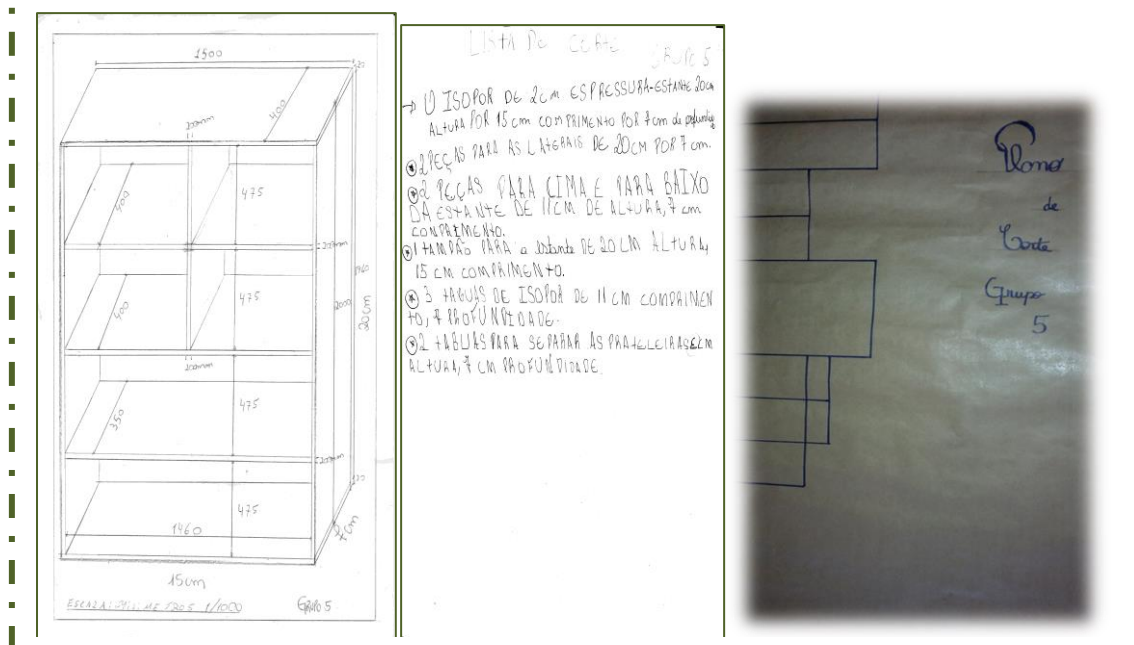 1500
20
400
200mm
475
400
200mm
1960
475
2000
20cm
400
200mm
475
350
200mm
20
475
1460
7cm
15cm
1/1000
GRUPO 5
LISTA DE CORTE
GRUPO 5
→ 1) ISOPOR DE 2CM ESPRESSURA-ESTANTE 20CM
ALTURA POR 15 cm COMPRIMENTO POR 7 cm de
2 PEÇAS PARA AS LATERAIS DE 20CM POR 7 cm.
2 PEÇAS PARA CIMA E PARA BAIXO
DA ESTANTE DE 11CM DE ALTURA, 7 cm
CONPRIMENTO.
1 TAMPÃO PARA a Estante DE 20 CM ALTURA,
15 CM COMPRIMENTO.
3 TABUAS DE ISOPOR DE 11 CM COMPRIMEN
TO, 7 PROFUNDIDADE.
2 TABUAS PARA SEPARAR AS PRATELEIRAS
ALTURA, 7 CM PROFUNDIDADE.
Plano
de
Corte
Grupo
5